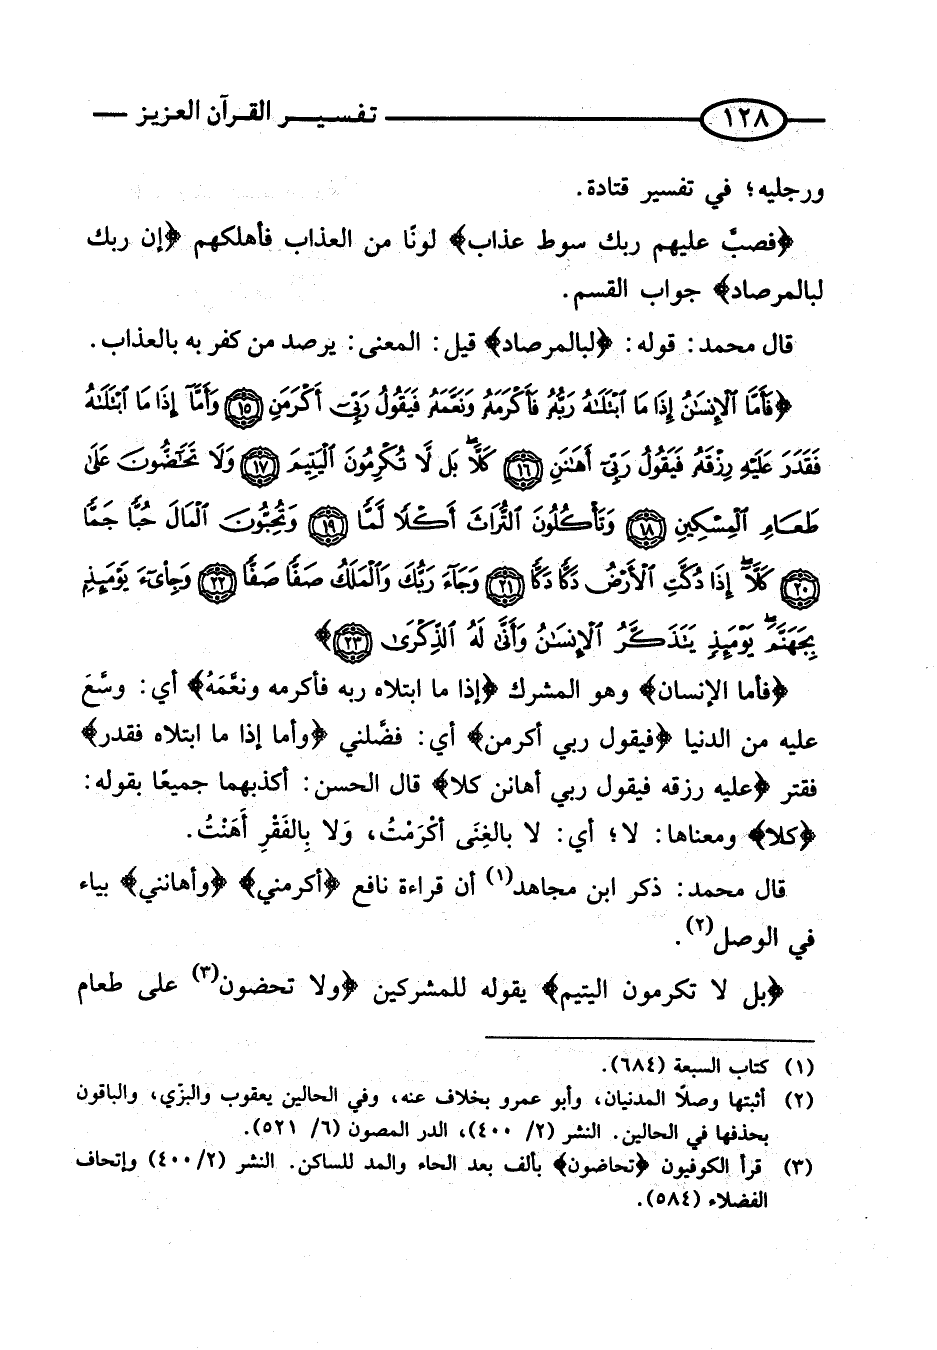 ١٢٨ تفسير القرآن العزيز
ورجليه؛ في تفسير قتادة.
﴿فصبَّ عليهم ربك سوط عذاب﴾ لونًا من العذاب فأهلكهم ﴿إن ربك
لبالمرصاد﴾ جواب القسم.
قال محمد: قوله: ﴿لبالمرصاد﴾ قيل: المعنى: يرصد من كفر به بالعذاب.
﴿فَأَمَّا ٱلْإِنسَٰنُ إِذَا مَا ٱبْتَلَىٰهُ رَبُّهُۥ فَأَكْرَمَهُۥ وَنَعَّمَهُۥ فَيَقُولُ رَبِّيٓ أَكْرَمَنِ ١٥ وَأَمَّآ إِذَا مَا ٱبْتَلَىٰهُ
فَقَدَرَ عَلَيْهِ رِزْقَهُۥ فَيَقُولُ رَبِّيٓ أَهَٰنَنِ ١٦ كَلَّاۖ بَل لَّا تُكْرِمُونَ ٱلْيَتِيمَ ١٧ وَلَا تَحَٰٓضُّونَ عَلَىٰ
طَعَامِ ٱلْمِسْكِينِ ١٨ وَتَأْكُلُونَ ٱلتُّرَاثَ أَكْلًا لَّمًّا ١٩ وَتُحِبُّونَ ٱلْمَالَ حُبًّا جَمًّا
٢٠ كَلَّآۖ إِذَا دُكَّتِ ٱلْأَرْضُ دَكًّا دَكًّا ٢١ وَجَآءَ رَبُّكَ وَٱلْمَلَكُ صَفًّا صَفًّا ٢٢ وَجِا۟يٓءَ يَوْمَئِذٍۭ
بِجَهَنَّمَۚ يَوْمَئِذٍ يَتَذَكَّرُ ٱلْإِنسَٰنُ وَأَنَّىٰ لَهُ ٱلذِّكْرَىٰ ٢٣﴾
﴿فأما الإنسان﴾ وهو المشرك ﴿إذا ما ابتلاه ربه فأكرمه ونعَّمَهُ﴾ أي: وسَّعَ
عليه من الدنيا ﴿فيقول ربي أكرمن﴾ أي: فضَّلني ﴿وأما إذا ما ابتلاه فقدر﴾
فقتر ﴿عليه رزقه فيقول ربي أهانن كلا﴾ قال الحسن: أكذبهما جميعًا بقوله:
﴿كلا﴾ ومعناها: لا؛ أي: لا بالغِنَى أكْرَمْتُ، وَلا بِالفَقْرِ أَهَنْتُ.
قال محمد: ذكر ابن مجاهد(١) أن قراءة نافع ﴿أكرمني﴾ ﴿وأهانني﴾ بياء
في الوصل(٢).
﴿بل لا تكرمون اليتيم﴾ يقوله للمشركين ﴿ولا تحضون(٣) على طعام
(١) كتاب السبعة (٦٨٤).
(٢) أثبتها وصلًا المدنيان، وأبو عمرو بخلاف عنه، وفي الحالين يعقوب والبزّي، والباقون
بحذفها في الحالين. النشر (٢/ ٤٠٠)، الدر المصون (٦/ ٥٢١).
(٣) قرأ الكوفيون ﴿تحاضون﴾ بألف بعد الحاء والمد للساكن. النشر (٢/ ٤٠٠) وإتحاف
الفضلاء (٥٨٤).